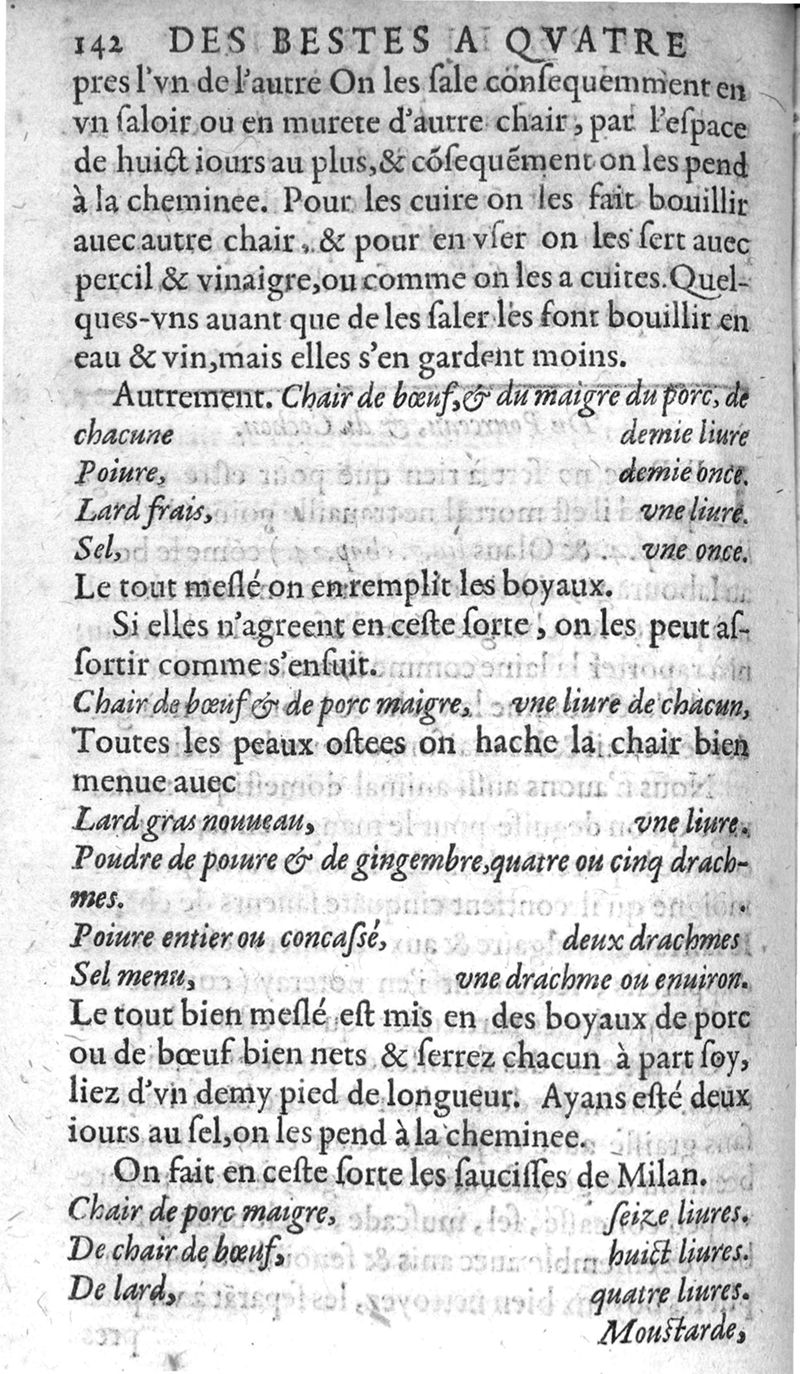 142 DES BESTES A QVATRE
pres l'vn de l'autre On les ſale cõnſequemment en
vn ſaloir ou en murete d'autre chair, par l'eſpace
de huict iours au plus, & cõſequẽment on les pend
à la cheminee. Pour les cuire on les fait bouillir
auec autre chair, & pour en vſer on les ſert auec
percil & vinaigre, ou comme on les a cuites. Quel-
ques-vns auant que de les ſaler les font bouillir en
eau & vin, mais elles s'en gardent moins.
Autrement. Chair de bœuf, & du maigre du porc, de
chacune demie liure
Poiure, demie once.
Lard frais, vne liure.
Sel, vne once.
Le tout meſlé on en remplit les boyaux.
Si elles n'agreent en ceſte ſorte, on les peut aſ-
ſortir comme s'enſuit.
Chair de bœuf & de porc maigre, vne liure de chacun,
Toutes les peaux oſtees on hache la chair bien
menue auec
Lard gras nouueau, vne liure.
Poudre de poiure & de gingembre, quatre ou cinq drach-
mes.
Poiure entier ou concaſſé, deux drachmes
Sel menu, vne drachme ou enuiron.
Le tout bien meſlé eſt mis en des boyaux de porc
ou de bœuf bien nets & ſerrez chacun à part ſoy,
liez d'vn demy pied de longueur. Ayans eſté deux
iours au ſel, on les pend à la cheminee.
On fait en ceſte ſorte les ſauciſſes de Milan.
Chair de porc maigre, ſeize liures.
De chair de bœuf, huict liures.
De lard, quatre liures.
Mouſtarde,